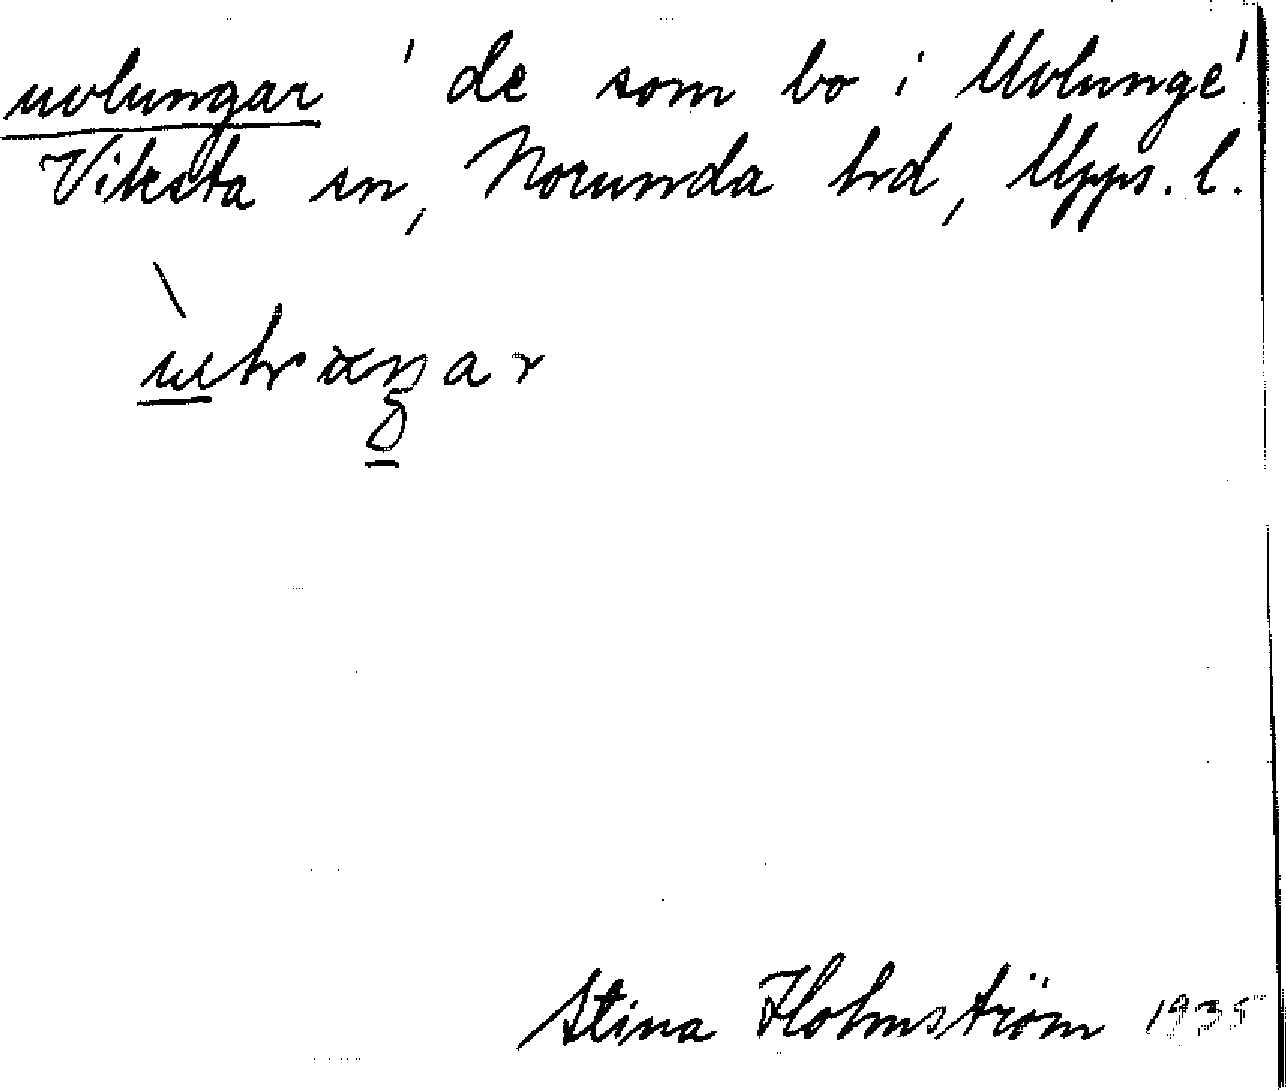 uvlungar 'de som bo i Uvlunge'
Viksta sn, Norunda hrd, Upps. l.
Stina Holmström 1935